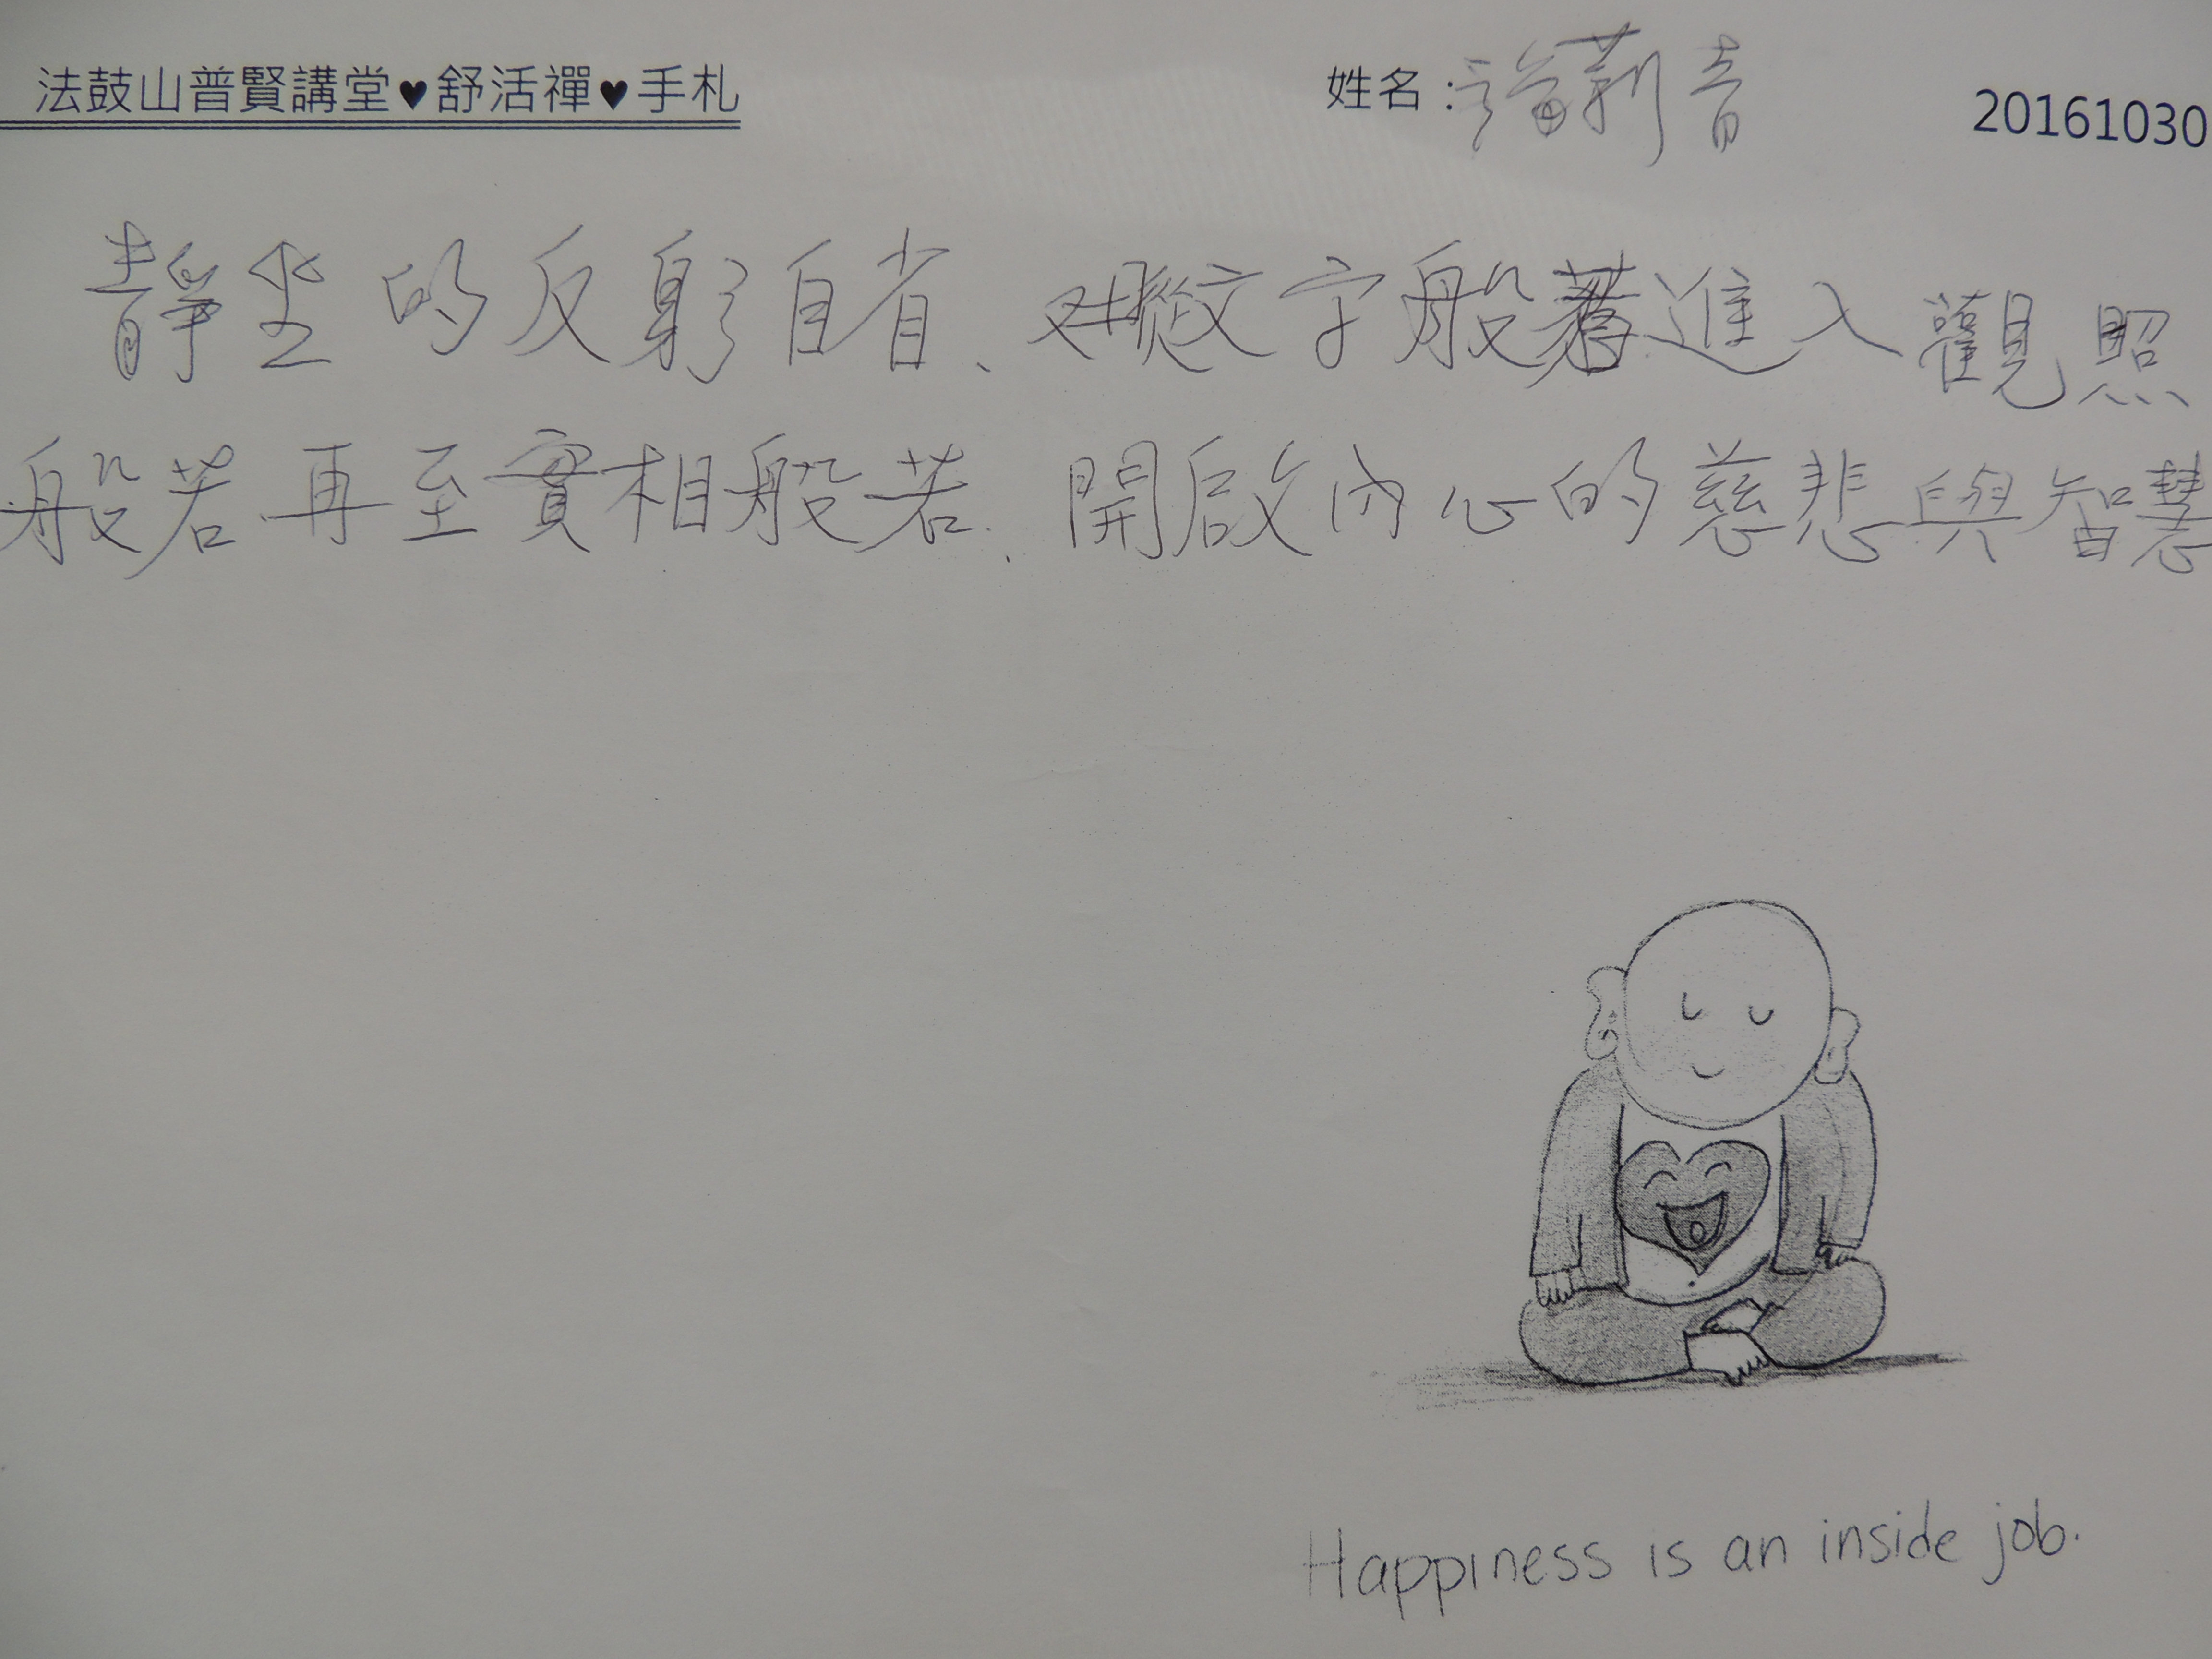 法鼓山普賢講堂♥舒活禪♥手札
姓名: 莉音
20161030
靜坐的反躬自省、從文字般若進入觀照
般若再至實相般若、開啟內心的慈悲與智慧
Happiness is an inside job.